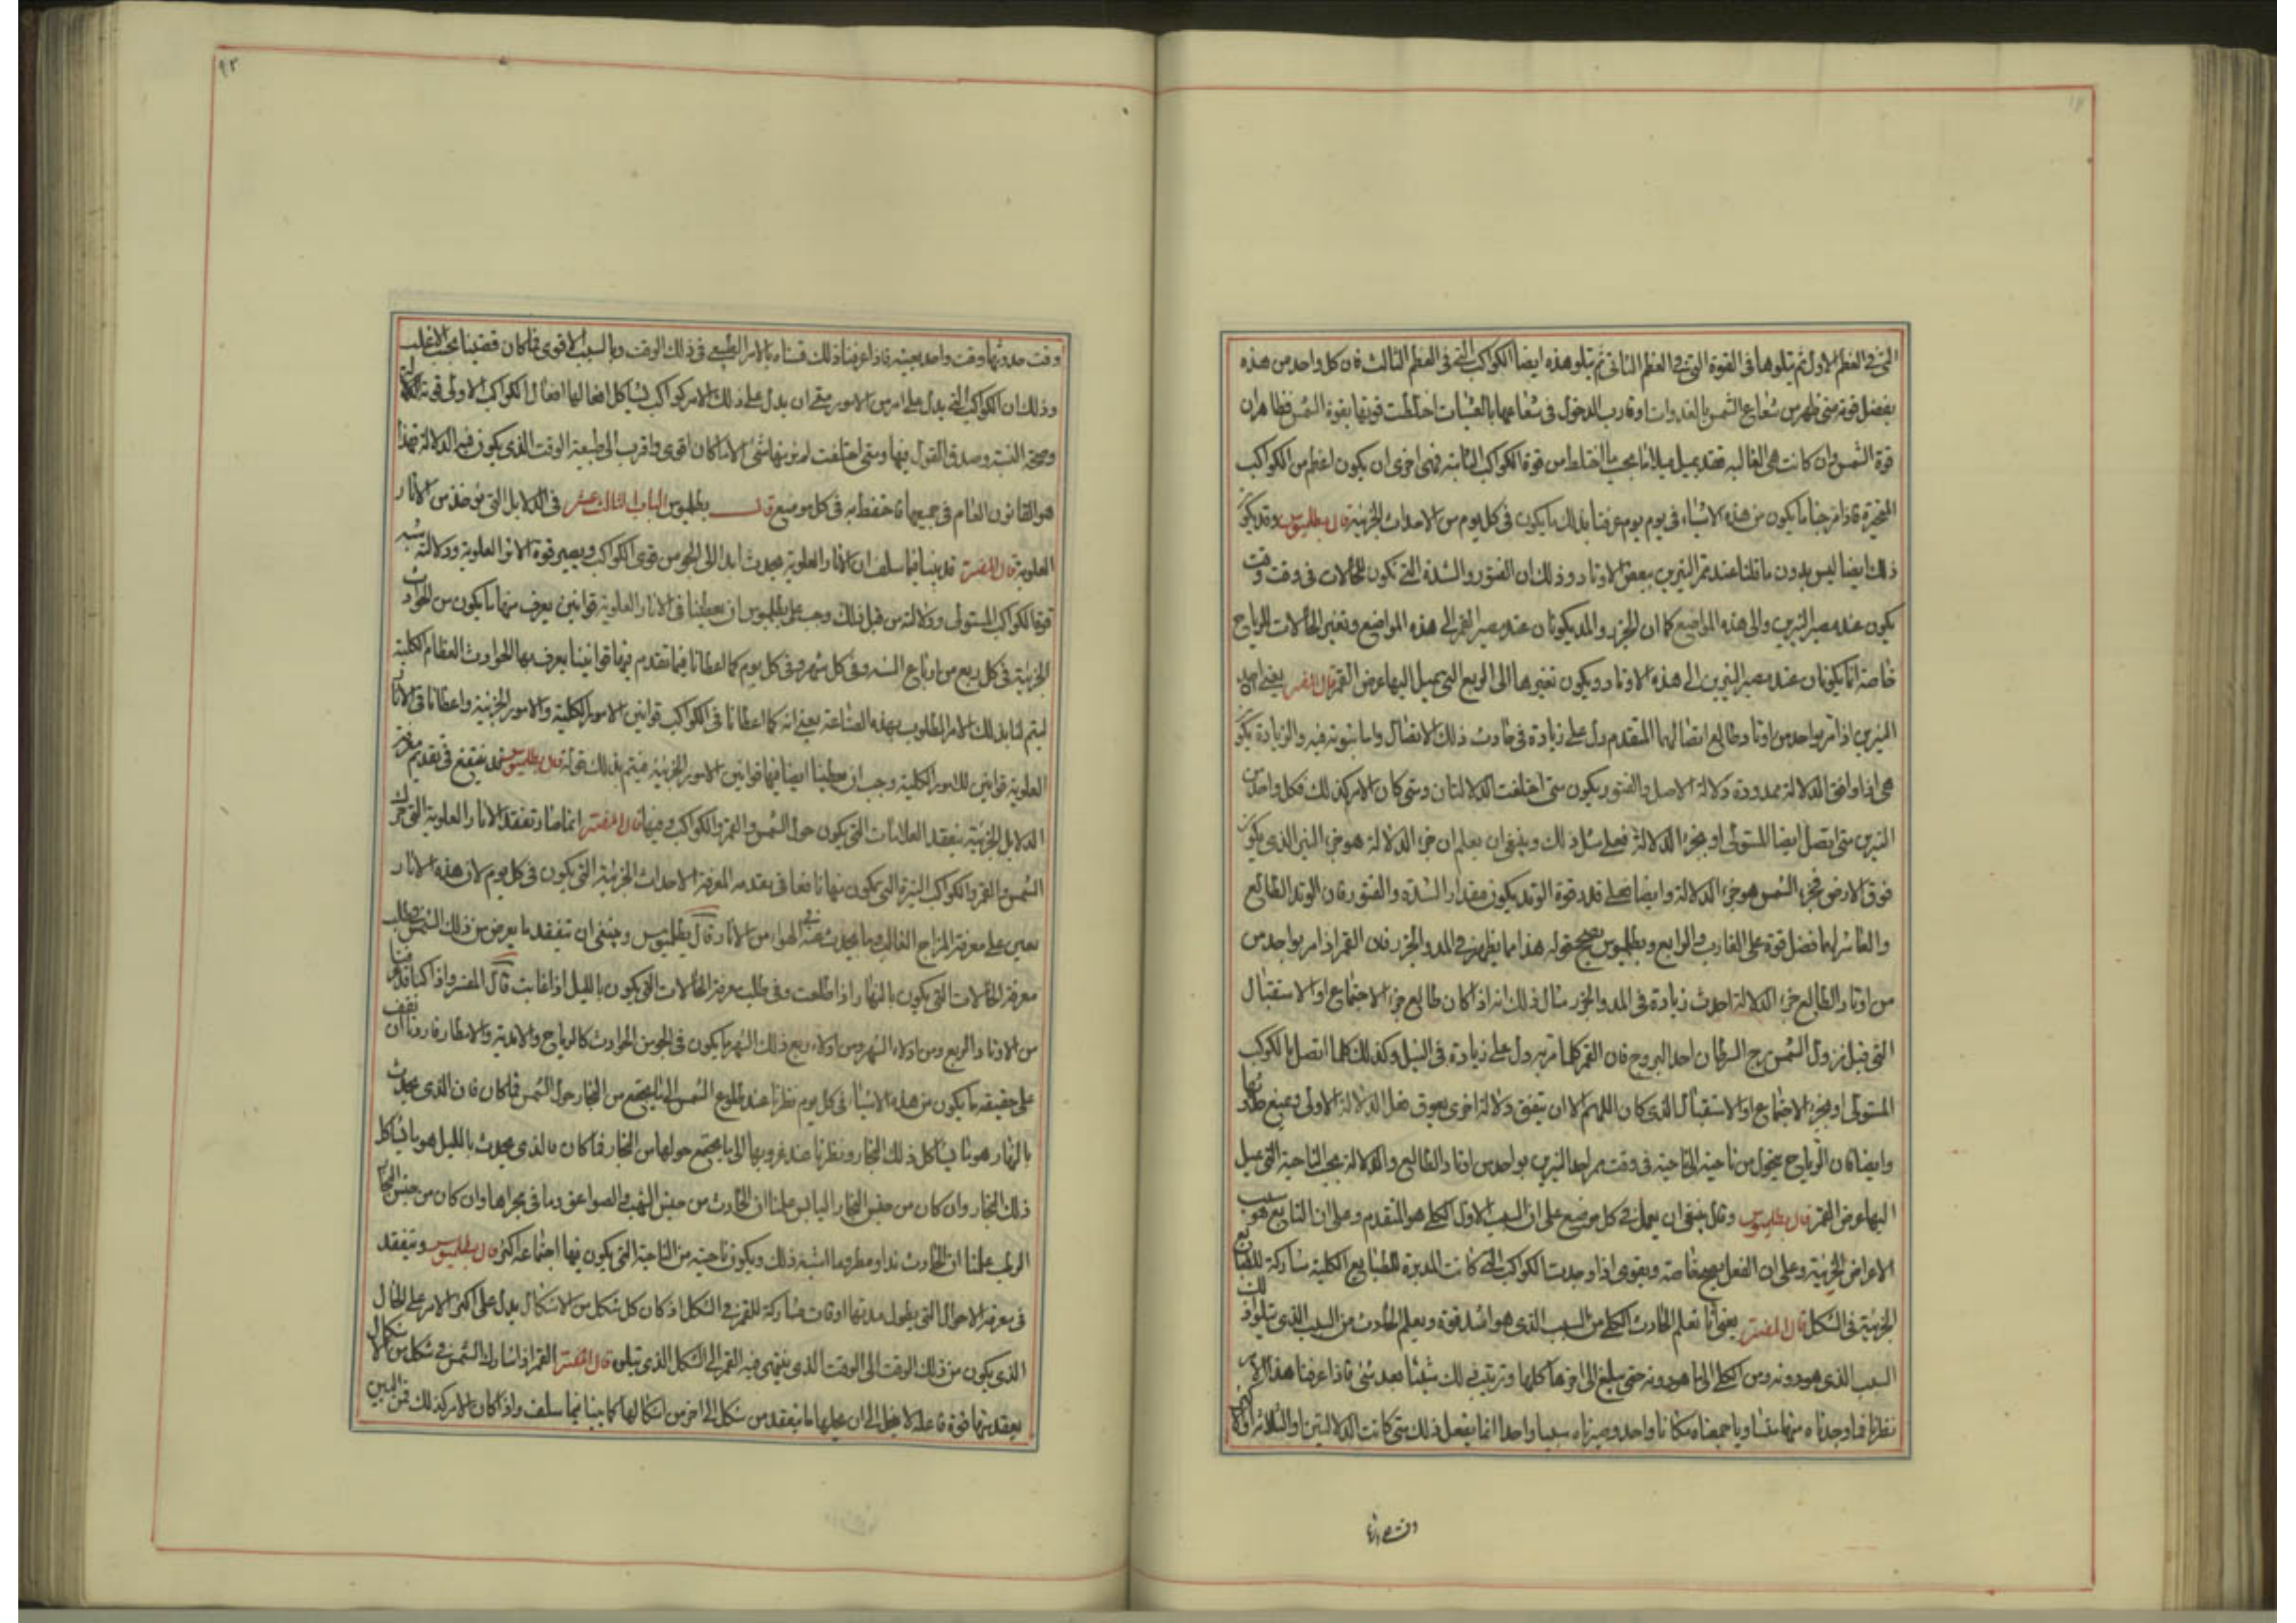 التى فى العظم الاول ثم يتلوها فى القوة التى فى العظم الثانى ثم يتلو هذه ايضا الكواكب التى فى العظم الثالث فان كل واحد من هذه
يفضل قوته متى ظهر من شعاع الشمس بالغدوات او قارب الدخول فى شعاعها بالعشيات اختلطت قوتها بقوة الشمس فظاهر ان
قوة الشمس وان كانت هى الغالبه فقد يميل ميلا ما بحسب ما اختلط من قوة الكواكب الثابتة فهى اخرى ان يكون اعظم من الكواكب
المتحيرة فاذا مزجنا ما يكون من هذه الاشياء فى يوم يوم عرفنا بذلك ما يكون فى كل يوم من الاحداث الجزئية قال بطلميوس وقد يكون
ذلك ايضا ليس بدون ما قلنا عند ممر النيرين ببعض الاوتاد وذلك ان الفتور والشدة التى تكون للحالات فى وقت وقت
يكون عند مصير النيرين والى هذه المواضع كما ان الجزر والمد يكونان عند مصير القمر الى هذه المواضع وتغير الحالات للرياح
خاصة انما يكونان عند مصير النيرين الى هذه الاوتاد ويكون تغيرها الى الربع التى يميل اليها عرض القمر قال المفسر يعنى ان احد
النيرين اذا مر بواحد من اوتاد طالع اتصالهما المتقدم دل على زيادة فى حادث ذلك الاتصال واما بثوته فيه والزيادة يكون
هى اذا وافق الدلالة ممدودة دلالة الاصل والفتور يكون متى اختلفت الدلالتان ومتى كان الامر كذلك فكل واحد من
النيرين متى اتصل ايضا للمستولى او بجزء الدلالة فعلى مثل ذلك وينبغى ان يعلم ان جزء الدلالة هو جزء النير الذى يكون
فوق الارض فجزء الشمس هو جزء الدلالة وايضا فعلى قدر قوة الوتد يكون مقدار الشدة والفتور فان الوتد الطالع
والعاشر لهما فضل قوة على الغارب والرابع وبطلميوس يصحح قوله هذا مما يظهر فى المد والجزر فان القمر اذا مر بواحد من
من اوتاد الطالع جزء الدلالة احدث زيادة فى المد والجزر مثال ذلك انه اذا كان طالع جزء الاجتماع او الاستقبال
التى قبل نزول الشمس برج السرطان احد البروج فان القمر كلما مر به دل على زيادة فى النيل وكذلك كلما اتصل بالكوكب
المستولى او بجزء الاجتماع او الاستقبال الذى كان اللهم الا ان يتفق دلالة اخرى يعوق فعل الدلالة الاولى ويمنع
وايضا فان الرياح يتحول من ناحية الى ناحية فى وقت ممر احد النيرين بواحد من اوتاد الطالع والدلالة بحسب الناحية التى يميل
اليها عرض القمر قال بطلميوس وقد ينبغى ان يعمل فى كل موضع على ان السبب الاول الكلى هو المتقدم وعلى ان التابع هو سبب
الاعراض الجزئية وعلى ان الفعل يصح خاصة ويقوى اذا وجدت الكواكب التى كانت المدبرة للطبايع الكلية مشاركة للطبايع
الجزئية فى الشكل قال المفسر يعنى انا نعلم الحادث الكلى من السبب الذى هو اشد قوة ويعلم الحادث من السبب الذى يتلو
السبب الذى هو دونه ومن الكلى الى ما هو دونه حتى يبلغ الى اخرها كلها وترتيب ذلك شيئا بعد شئ فاذا عرفنا هذا الامر
نظرنا فما وجدناه منها متساويا جمعناه مكانا واحد وصيرناه سببا واحدا انما يفعل ذلك متى كانت الدلالتين او الثلاثة او اكثر
وقت حدوثها
٩٢
وقت حدوثها وقت واحد بعينه فاذا عرفنا ذلك قسناه بالامر الطبيعى فى ذلك الوقت وبالسبب الاقوى فما كان قضينا بحسب الاغلب
وذلك ان الكواكب التى يدل على امر من الامور متى ان يدل على ذلك الامر كواكب يشاكل افعالها افعال الكواكب الاولى قوة
وصحة النسبة وصدق القول فيها ومتى اختلفت لم يوثق منها شئ الا ما كان اقوى واقرب الى طبيعة الوقت الذى يكون فيه الدلالة فهذا
هو القانون العام فى جميعها فاحتفظ به فى كل موضع قال بطلميوس الباب الثالث عشر فى الدلايل التى يؤخذ من الاثار
العلوية قال المفسر قد بينا فيما سلف ان الاثار العلوية يحدث ابدا الى الجو من قوى الكواكب ويصير قوة الاثر العلوية ودلالته يشبه
قوة الكواكب المستولى ودلالته من قبل ذلك وجب على بطلميوس ان يعطينا فى الاثار العلوية قوانين يعرف منها ما يكون من الحوادث
الجزئية فى كل ربع من ارباع السنه وفى كل شهر وفى كل يوم كما اعطانا فيما تقدم فيها قوانينا يعرف بها الحوادث العظام الكلية
ليتم لنا بذلك الامر المطلوب بهذه الصناعة يعنى انه كما اعطانا فى الكواكب قوانين الامور الكلية والامور الجزئية واعطانا فى الاثار
العلوية قوانين للامور الكلية وجب ان يعطينا ايضا فيها قوانين الامور الجزئية فيتم بذلك قوله قال بطلميوس قد ينتفع فى تقديم معرفة
الدلايل الجزئية بتفقد العلامات التى يكون حول الشمس والقمر والكواكب وفيها قال المفسر انما صار تفقد الاثار العلوية التى حول
الشمس والقمر والكواكب النيرة التى يكون منها نافعا فى تقدمة المعرفة الاحداث الجزئية التى يكون فى كل يوم لان هذه الاثار
تعين على معرفة المزاج الغالب وما يحدث عنه فى الهواء من الاثار قال بطلميوس وينبغى ان تتفقد ما يعرض من ذلك الشمس وطلب
معرفة الحالات التى يكون بالنهار اذا طلعت وفى طلب معرفة الحالات التى يكون بالليل اذا غابت قال المفسر واذا كنا قد عرفنا
من الاوتاد الربع ومن اولاء الشهر ومن اولاء ربع ذلك الشهر ما يكون فى الجو من الحوادث كالرياح والاندية والامطار فاردنا ان نقف
على حقيقة ما يكون من هذه الاشياء فى كل يوم نظرنا عند طلوع الشمس الى ما يجتمع من البخار حول الشمس فما كان فان الذى يحدث
بالنهار هو ما يشاكل ذلك البخار ونظرنا عند غروبها الى ما يجتمع حولها من البخار فما كان فالذى يحدث بالليل هو ما يشاكل
ذلك البخار وان كان من جنس البخار اليابس علمنا ان الحادث من جنس الشهب والصواعق وما فى مجراها وان كان من جنس البخار
الرطب علمنا ان الحادث ندا ومطر وما اشبه ذلك ويكون ناحيته من الناحية التى يكون فيها اجتماعه اكثر قال بطلميوس ويتفقد
فى معرفة الاحوال التى يطول مدتها اوقات مشاركة للقمر فى الشكل اذ كان كل شكل من الاشكال يدل على اكثر الامر على الحال
الذى يكون من ذلك الوقت الى الوقت الذى ينتهى فيه القمر الى الشكل الذى يتلوه قال المفسر القمر اذا شارك الشمس فى شكل من الاشكال
يعقد منها قوة فاعلة لا يخل الى ان يحلها ما يتفقد من شكل الى اخر من اشكالها كما بينا فيما سلف واذا كان الامر كذلك فمن البين